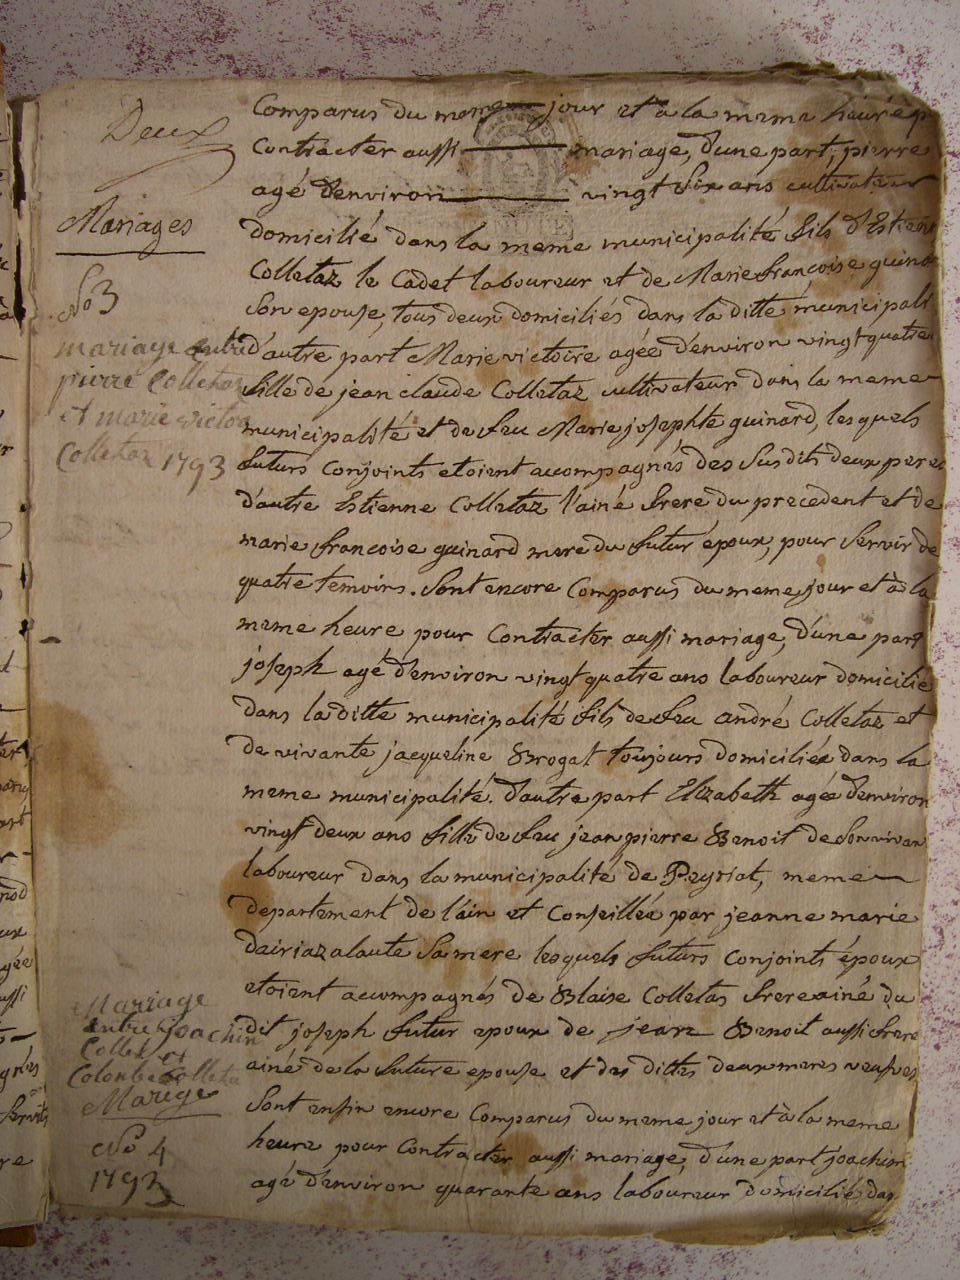 Deux
Mariages
No 3
mariage entre
pierre Colletaz
et marie victoire
Colletaz 1793
Comparus du meme jour et a la meme heure p
Contracter aussi mariage, d'une part, pierre
agé d'environ vingt six ans cultivateur
domicilié dans la meme municipalité fils d'Estien
Colletaz le Cadet laboureur et de Marie francoise guina
Son epouse, tous deux domiciliés dans la ditte municipali
d'autre part Marie victoire agée d'environ vingt quatre
fille de jean claude Colletaz cultivateur dans la meme
municipalité et de feu Marie josephte guinard, lesquels
futurs Conjoints etoient accompagnés des Susdits deux peres
d'autre Estienne Colletaz l'ainé frere du precedent et de
marie francoise guinard mere du futur epoux, pour Servir de
quatre temoins. Sont encore Comparus du meme jour et à la
meme heure pour Contracter aussi mariage, d'une part
joseph agé d'environ vingt quatre ans laboureur domicilié
dans la ditte municipalité fils de feu andré Colletaz et
de vivante jacqueline Brogat toujours domiciliée dans la
meme municipalité. d'autre part Elizabeth agée d'environ
vingt deux ans fille de feu jean pierre Benoit de Son vivan
laboureur dans la municipalité de Peyriat, meme
departement de l'ain et Conseillée par jeanne marie
Sa mere lesquels futurs Conjoints époux
etoient accompagnés de Blaise Colletas frere ainé du
dit joseph futur epoux de jean Benoit aussi frere
ainé de la future epouse et des dittes deux meres veufves
Sont enfin encore Comparus du meme jour et à la meme
heure pour Contracter aussi mariage, d'une part joachim
agé d'environ quarante ans laboureur domicilié dan
Mariage
entre joachim
Collet et
Colombe Colleta
Mariage
No 4
1793